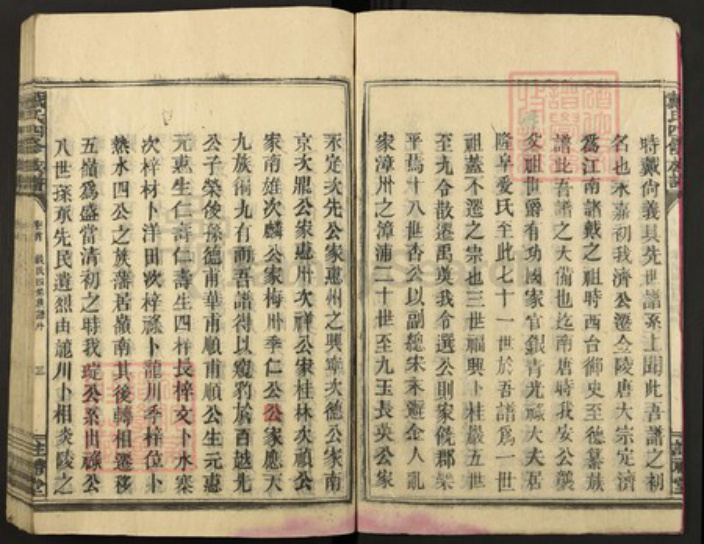 時戴尚義具先世譜系上聞此吾譜之初
名也永嘉初我濟公遷金陵唐太宗定濟
爲江南諸戴之祖時西台御史至德纂族
譜此吾譜之大備也迄南唐時我安公襲
父祖世爵有功國家官銀青光祿大夫居
隆阜愛氏至此七十一世於吾譜爲一世
祖蓋不遷之宗也三世福興卜桂巖五世
至九令散遷禹英我令選公則家饒郡樂
平焉十八世杏公以副總宋末避金人亂
家漳州之漳浦二十世至九玉長英公家
永定次先公家惠州之興寧次德公家南
京次鼎公家惠州次祥公家桂林次禎公
家南雄次麟公家梅州季仁公公家應天
九族備九有而吾譜得以窺豹於百越先
公子榮俊孫德甫華甫順甫順公生元惠
元惠生仁壽仁壽生四梓長梓文卜水寨
次梓材卜洋田次梓祿卜龍川季梓位卜
熱水四公之族藩居嶺南其後轉相遷移
五嶺爲盛當清初之時我琁公系出祿公
八世孫承先民遺烈由龍川卜相炎陵之
戴氏四修族譜
卷首
戴氏四修族譜序
三
註禮堂